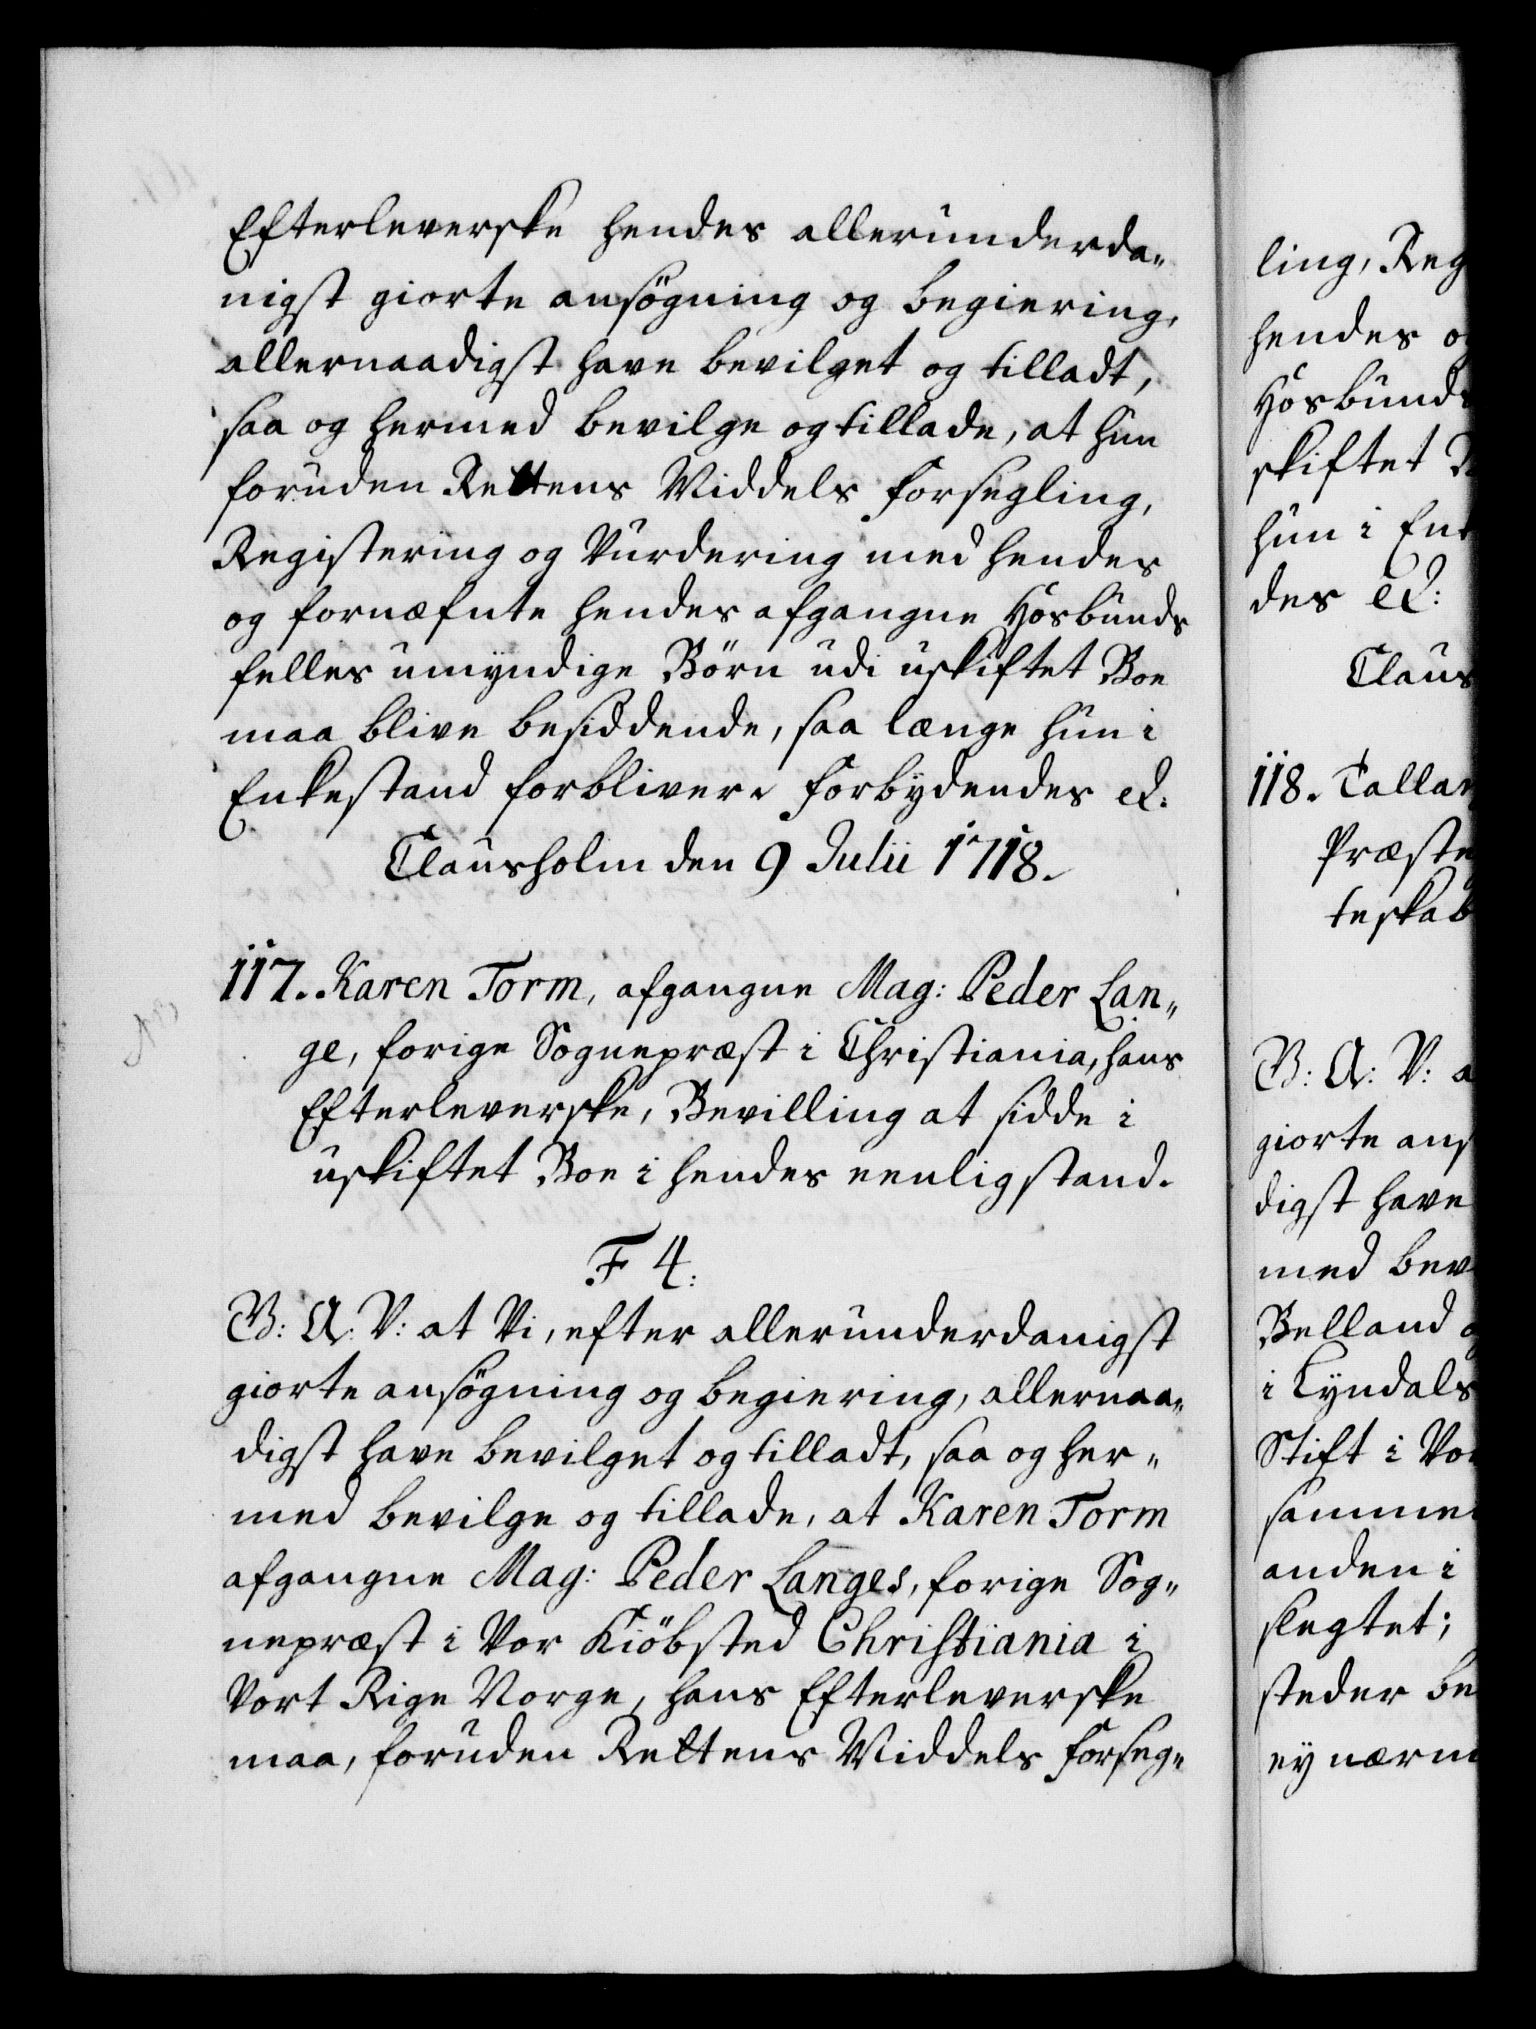 Efterleverske hendes allerunderda„
nigst giorte ansøgning og begiering,
allernaadigst have bevilget og tilladt,
saa og hermed bevilge og tillade, at hun
foruden Rettens Middels forsegling,
Registering og Vurdering med hendes
og fornæfnte hendes afgangne Hosbunds
felles umyndige Børn udi uskiftet Boe
maa blive besiddende, saa længe hun i
Enkestand forbliver. Forbydendes etc.
Clausholm den 9 Julii 1718.
117. Karen Torm, afgangne Mag: Peder Lan„
ge, forige Sognepræst i Christiania, hans
Efterleverske, Bevilling at sidde i
uskiftet Boe i hendes eenligstand.
F 4:
G: A: V: at Vi, efter allerunderdanigst
giorte ansøgning og begiering, allernaa„
digst have bevilget og tilladt, saa og her„
med bevilge og tillade, at Karen Torm
afgangne Mag: Peder Langes, forige Sog„
nepræst i Vor Kiöbsted Christiania i
Vort Rige Norge, hans Efterleverske
maa, foruden Rettens Middels forseg„
ling, Reg
hendes og
Hosbunds
skiftet B
hun i Enk
des etc:
Claus
118. Tallan
Præste
teskab
G: A: V: a
giorte ans
digst have
med bev
Belland og
i Lyndals
Stift i Vor
sammen
anden i
slegtet;
steder be
ey nærm